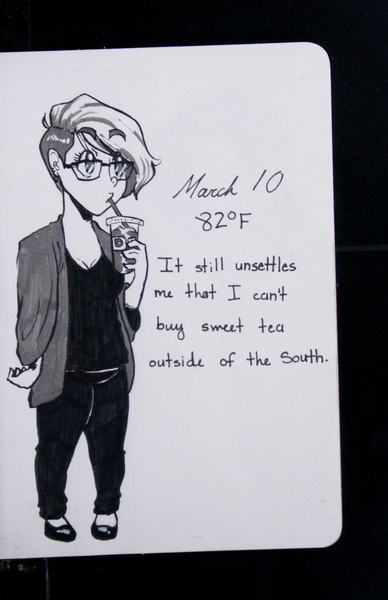 March 10
82°F
It still unsettles
me that I can't
buy sweet tea
outside of the South.